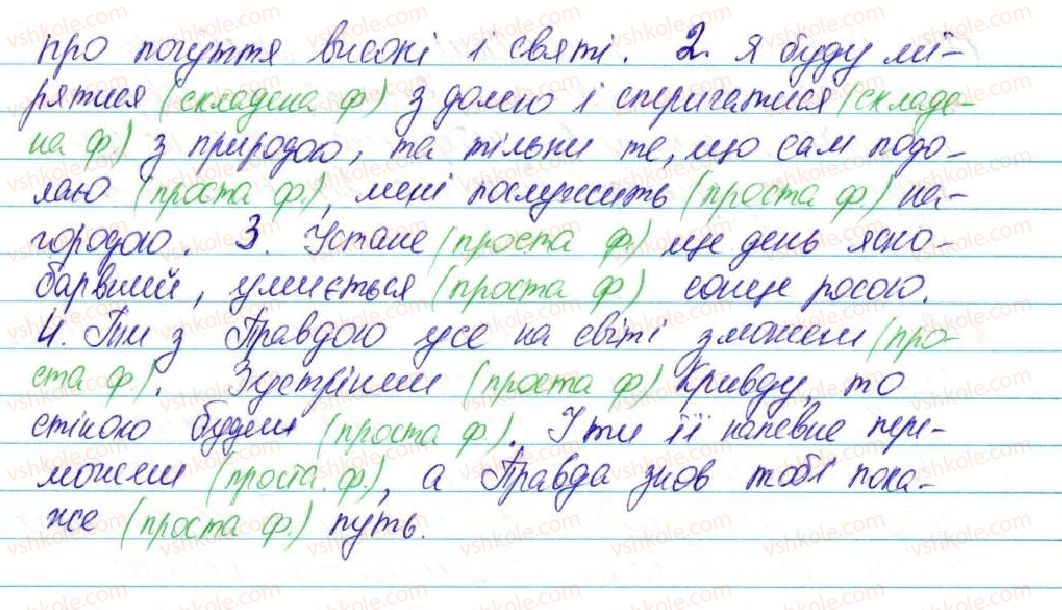 про почуття високі і святі. 2. Я буду мі-
рятися (складена ф.) з долею і сперичатися (складе-
на ф.) з природою, та тільки те, що сам подо-
лаю (проста ф.), мені послужить (проста ф.) на-
городою. 3. Устане (проста ф.) ще день ясно-
барвний, умиється (проста ф.) сонце росою.
4. Ти з Правдою усе на світі зможеш (про-
ста ф.). Зустрінеш (проста ф.) Кривду, то
стіною будеш (проста ф.). І ти її напевне пере-
можеш (проста ф.), а Правда знов тобі пока-
же (проста ф.) путь.